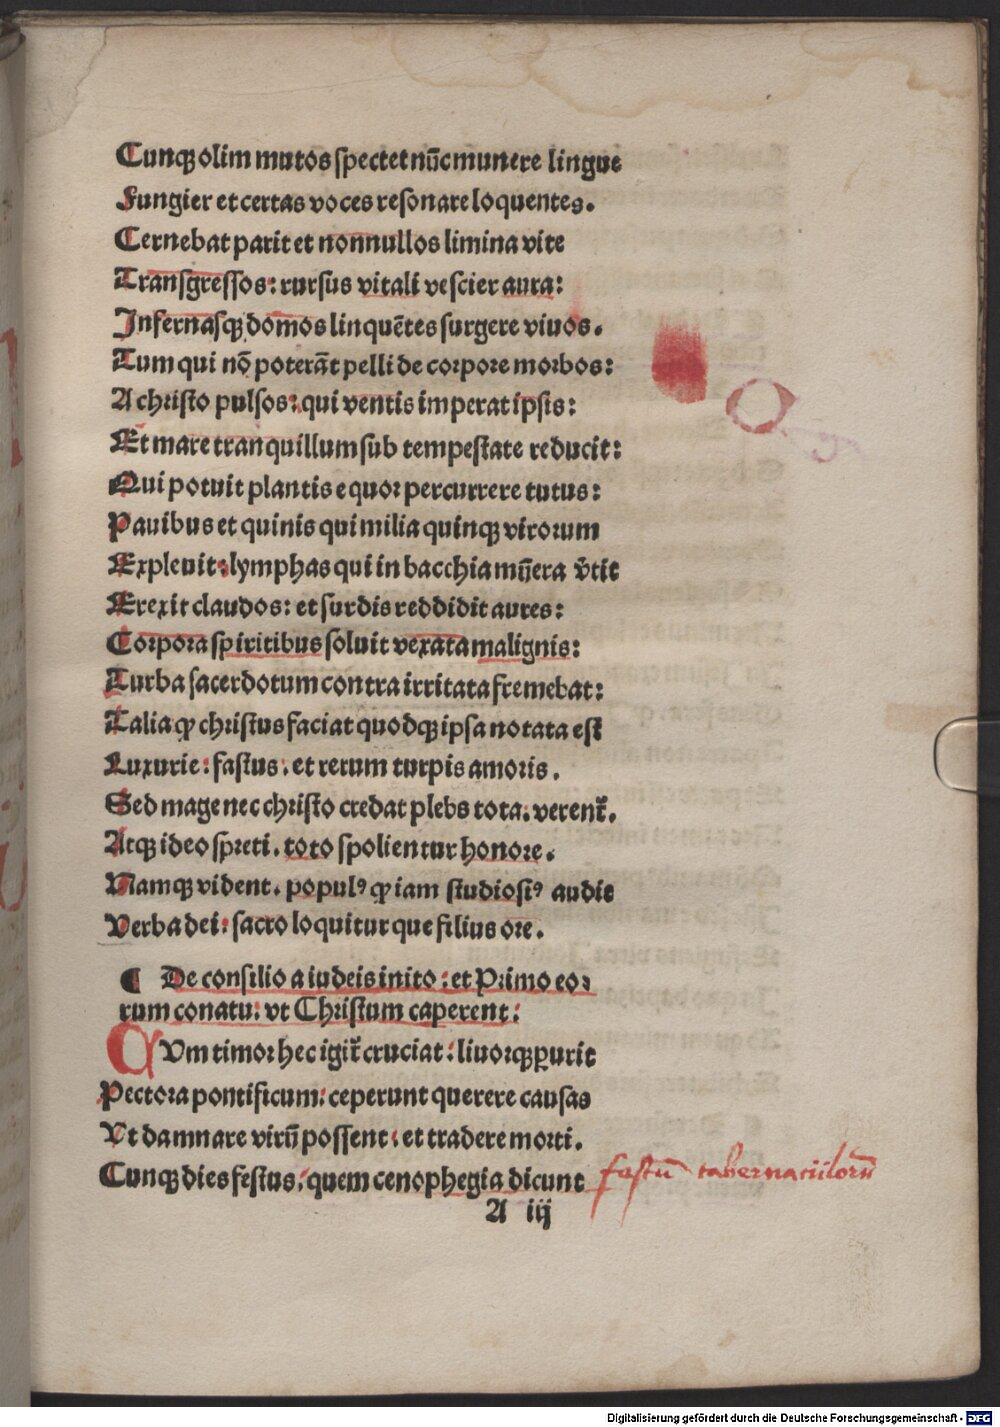 Cunqꝫ olim mutos spectet nūc munere lingue
Fungier et certas voces resonare loquentes.
Cernebat parit et nonnullos limina vite
Transgressos: rursus vitali vescier aura:
Infernasqꝫ domos linquētes surgere viuos.
Tum qui nō poterāt pelli de corpore morbos:
A christo pulsos: qui ventis imperat ipsis:
Et mare tranquillum sub tempestate reducit:
Qui potuit plantis equor percurrere tutus:
Panibus et quinis qui milia quinqꝫ virorum
Expleuit: lymphas qui in bacchia mūera v̄tit
Erexit claudos: et surdis reddidit aures:
Corpora spiritibus soluit vexata malignis:
Turba sacerdotum contra irritata fremebat:
Talia ꝙ christus faciat quodqꝫ ipsa notata est
Luxurie: fastus. et rerum turpis amoris.
Sed mage nec christo credat plebs tota. verent᷑.
Atqꝫ ideo spreti. toto spolientur honore.
Namqꝫ vident. populꝰ ꝙ iam studiosiꝰ audit
Verba dei: sacro loquitur que filius ore.
¶ De consilio a iudeis inito: et Primo eo⸗
rum conatu: vt Christum caperent:
CVm timor hec igit᷑ cruciat: liuorqꝫ ꝑurit
Pectora pontificum: ceperunt querere causas
Vt damnare virū possent: et tradere morti.
Cunqꝫ dies festus. quem cenophegia dicunt
festū tabernaculorū
A iij
Digitalisierung gefördert durch die Deutsche Forschungsgemeinschaft - DFG